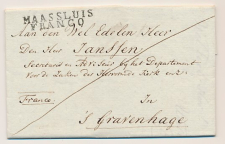 MAASSLUIS
FRANCO
Aan den Wel Edelen Heer
Den Heer Janssen
Secretaris en Adviseur by het Departement
voor de Zaken der Hervormde Kerk enz.
Franco
In
's Gravenhage